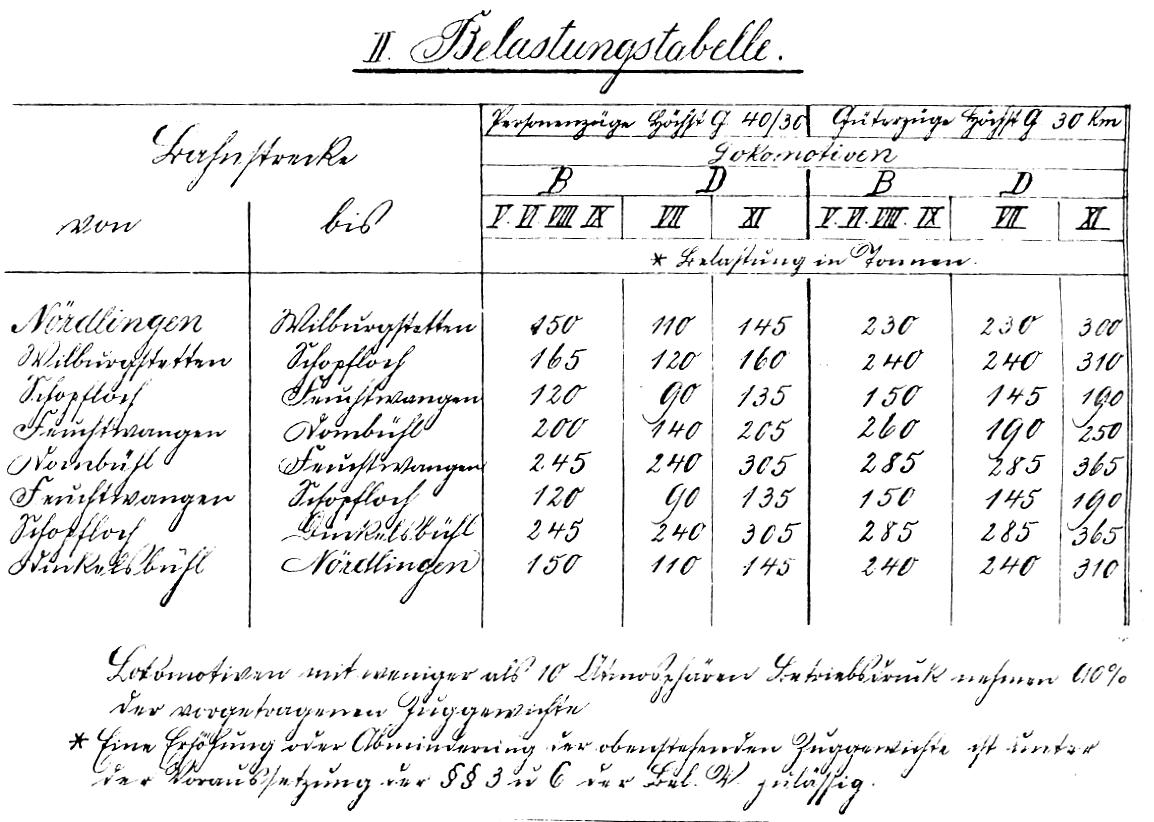 II. Belastungstabelle.
Personenzüge Höchst G 40/30 Güterzüge Höchst G 30 Km
Bahnstrecke
Lokomotiven
B D B D
von bis V. VI. VIII. IX VII XI V. VI. VIII. IX VII XI
* Belastung in Tonnen.
Nördlingen Wilburgstetten 150 110 145 230 230 300
Wilburgstetten Schopfloch 165 120 160 240 240 310
Schopfloch Feuchtwangen 120 90 135 150 145 190
Feuchtwangen Dombühl 200 140 205 260 190 250
Dombühl Feuchtwangen 245 240 305 285 285 365
Feuchtwangen Schopfloch 120 90 135 150 145 190
Schopfloch Dinkelsbühl 245 240 305 285 285 365
Dinkelsbühl Nördlingen 150 110 145 240 240 310
Lokomotiven mit weniger als 10 Atmosphären Betriebsdruck nehmen 90%
der vorgetragenen Zuggewichte
* Eine Erhöhung oder Abminderung der obenstehenden Zuggewichte ist unter
der Voraussetzung der §§ 3 u 6 der Bel. V. zulässig.